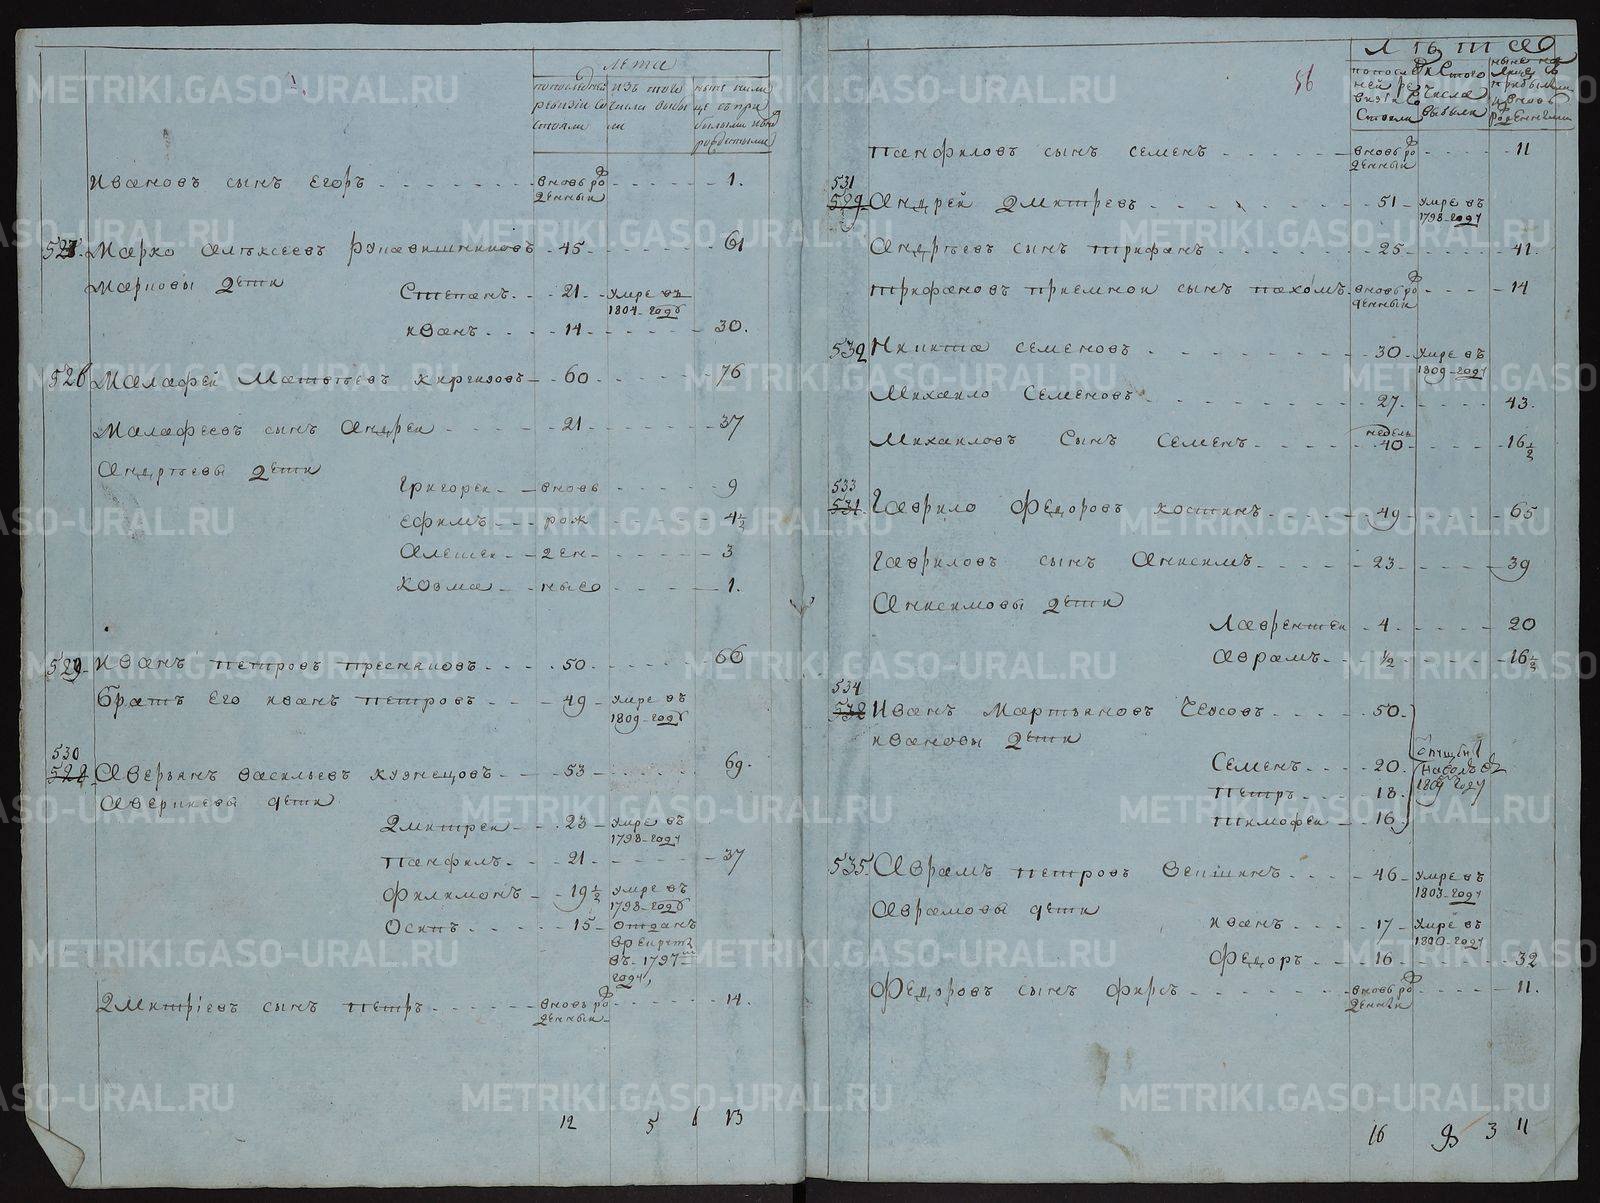 лета
попоследней ревизiи состояли
изъ того числа выбыли
ныне налице съ прибылыми и новорожденными
Ивановъ сынъ Егоръ вновь рожденныи 1.
Марко Алексеевъ 45 61
Марковы дети
Степанъ 21 умре въ 1804 году
Иванъ 14 30.
528 Малафей Матвеевъ Киргизовъ 60 76
Малафеевъ сынъ Андреи 21 37
Андреевы дети
Григореи вновь 9
Ефимъ рож 4½
Алексеи ден 3
Козма ныя 1.
529 Иванъ Петровъ Пресняковъ 50 66
братъ Его Иванъ Петровъ 49 умре въ 1809 году
530
Аверьянъ Васильевъ Кузнецовъ 53 69.
Авериневы дети
Дмитреи 23 умре въ 1798 году
Панфилъ 21 37
Филимонъ 19½ умре въ 1798 году
Осипъ 15 отданъ въ рекруты въ 1797м году
Дмитрiевъ сынъ Петръ вновь рожденныи 14
12 5 6 13
86
Лета
попоследней ревизiи состояли
изъ того числа выбыли
ныне на лице съ прибылыми и вновь рожденными
Панфиловъ сынъ Семенъ вновь рожденныи 11
531
529 Андрей Дмитревъ 51 умре въ 1798 году
Андреевъ сынъ Трифанъ 25 41.
Трифановъ приемнои сынъ Пахомъ вновь рожденныи 14
532 Никита Семеновъ 30 умре въ 1809 году
Михаило Семеновъ 27 43.
Михаиловъ Сынъ Семенъ недель 40 16½
533
531 Гаврило Федоровъ Костинъ 49 65
Гавриловъ сынъ Анисимъ 23 39
Анисимовы дети
Лаврентеи 4 20
Аврамъ ½ 16½
534
532 Иванъ Мартьяновъ Чеусовъ 50
Ивановы дети
Семенъ 20
Петръ 18
Тимофеи 16
1809 году
535 Аврамъ Петровъ Векшинъ 46 умре въ 1803 году
Аврамовы дети
Иванъ 17 умре въ 1800 году
Федоръ 16 32
Федоровъ сынъ Фирсъ вновь рожденныи 11.
16 8 3 11
METRIKI.GASO-URAL.RU